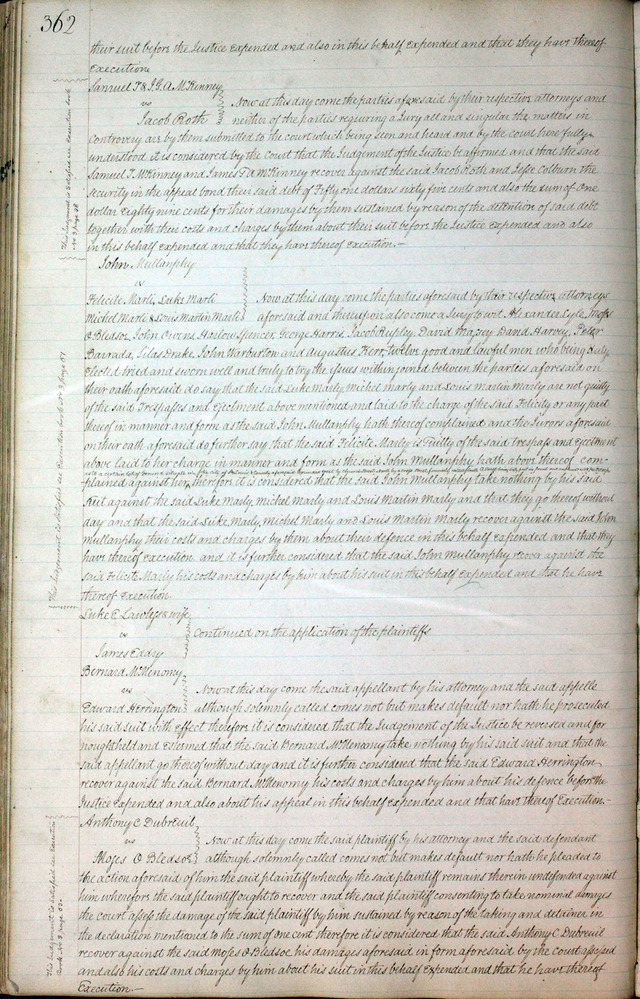 362
their suit before the Justice expended and also in this behalf expended and that they have thereof
Execution
Samuel T & J. G. A. McKinney
vs
Jacob Roth
Now at this day come the parties aforesaid by their respective attorneys and
neither of the parties requiring a Jury all and singular the matters in
Controversy are by them submitted to the court which being seen and heard and by the court here fully
understood it is considered by the Court that the Judgement of the Justice be affirmed and that the said
Samuel T. McKinney and James G A McKinney recover against the said Jacob Roth and Jesse Colburn the
security in the appeal bond their said debt of Fifty one dollars sixty five cents and also the sum of One
dollar Eighty nine cents for their damages by them sustained by reason of the detention of said debt
together with their costs and charges by them about their suit before the Justice Expended and also
in this behalf expended and that they have thereof Execution.—
This judgment is satisfied see Execution book
No 3 page 28
John Mullanphy
vs
Felicite Marli, Luke Marli
Michel Marli & Louis Martin Marli
Now at this day come the parties aforesaid by their respective attorneys
aforesaid and thereupon also come a Jury to wit. Alexander Lyle, Moses
O Bledsoe, John Owens, Harlow Spencer, George Harris, Jacob Rupley, David Maxey, David Harvey, Peter
Barrada, Silas Drake, John Warburton and Augustus Kerr, twelve good and lawful men who being duly
elected tried and sworn well and truly to try the issues within joined between the parties aforesaid on
their oath aforesaid do say that the said Luke Marly, Michel Marly and Louis Martin Marly are not guilty
of the said Trespasses and Ejectment above mentioned and laid to the charge of the said Felicity or any part
thereof in manner and form as the said John Mullanphy hath thereof complained and the Jurors aforesaid
on their oath aforesaid do further say that the said Felicite Marly is Guilty of the said trespass and Ejectment
above laid to her charge in manner and form as the said John Mullanphy hath above thereof com-
plained against her, therefore it is considered that the said John Mullanphy take nothing by his said
suit against the said Luke Marly, Michel Marly and Louis Martin Marly and that they go thereof without
day and that the said Luke Marly, Michel Marly and Louis Martin Marly recover against the said John
Mullanphy their costs and charges by them about their defence in this behalf expended and that they
have thereof Execution. and it is further considered that the said John Mullanphy recover against the
said Felicite Marly his costs and charges by him about his suit in this behalf Expended and that he have
thereof Execution.
This Judgement is satisfied see Execution book No 3 page 61
Luke E Lawless & wife
vs
James Eddy
Continued on the application of the plaintiffs
Bernard McMenomy
vs
Edward Herrington
Now at this day come the said appellant by his attorney and the said appelle
although solemnly called comes not but makes default nor hath he prosecuted
his said suit with effect therefore it is considered that the Judgement of the Justice be reversed and for
nought held and Esteemed that the said Bernard McMenomy take nothing by his said suit and that the
said appellant go thereof without day and it is further considered that the said Edward Herrington
recover against the said Bernard McMenomy his costs and charges by him about his defence before the
Justice Expended and also about his appeal in this behalf expended and that have thereof Execution.
Anthony C Dubreuil
vs
Moses O Bledsoe
Now at this day come the said plaintiff by his attorney and the said defendant
although solemnly called comes not but makes default nor hath he pleaded to
the action aforesaid of him the said plaintiff whereby the said plaintiff remains therein undefended against
him wherefore the said plaintiff ought to recover and the said plaintiff consenting to take nominal damages
the court assess the damage of the said plaintiff by him sustained by reason of the taking and detainer in
the declaration mentioned to the sum of one cent therefore it is considered that the said Anthony C Dubreuil
recover against the said Moses O Bledsoe his damages aforesaid in form aforesaid by the court assessed
and also his costs and charges by him about his suit in this behalf Expended and that he have thereof
Execution.—
This Judgement is satisfied see Execution
Book No 3 page 62